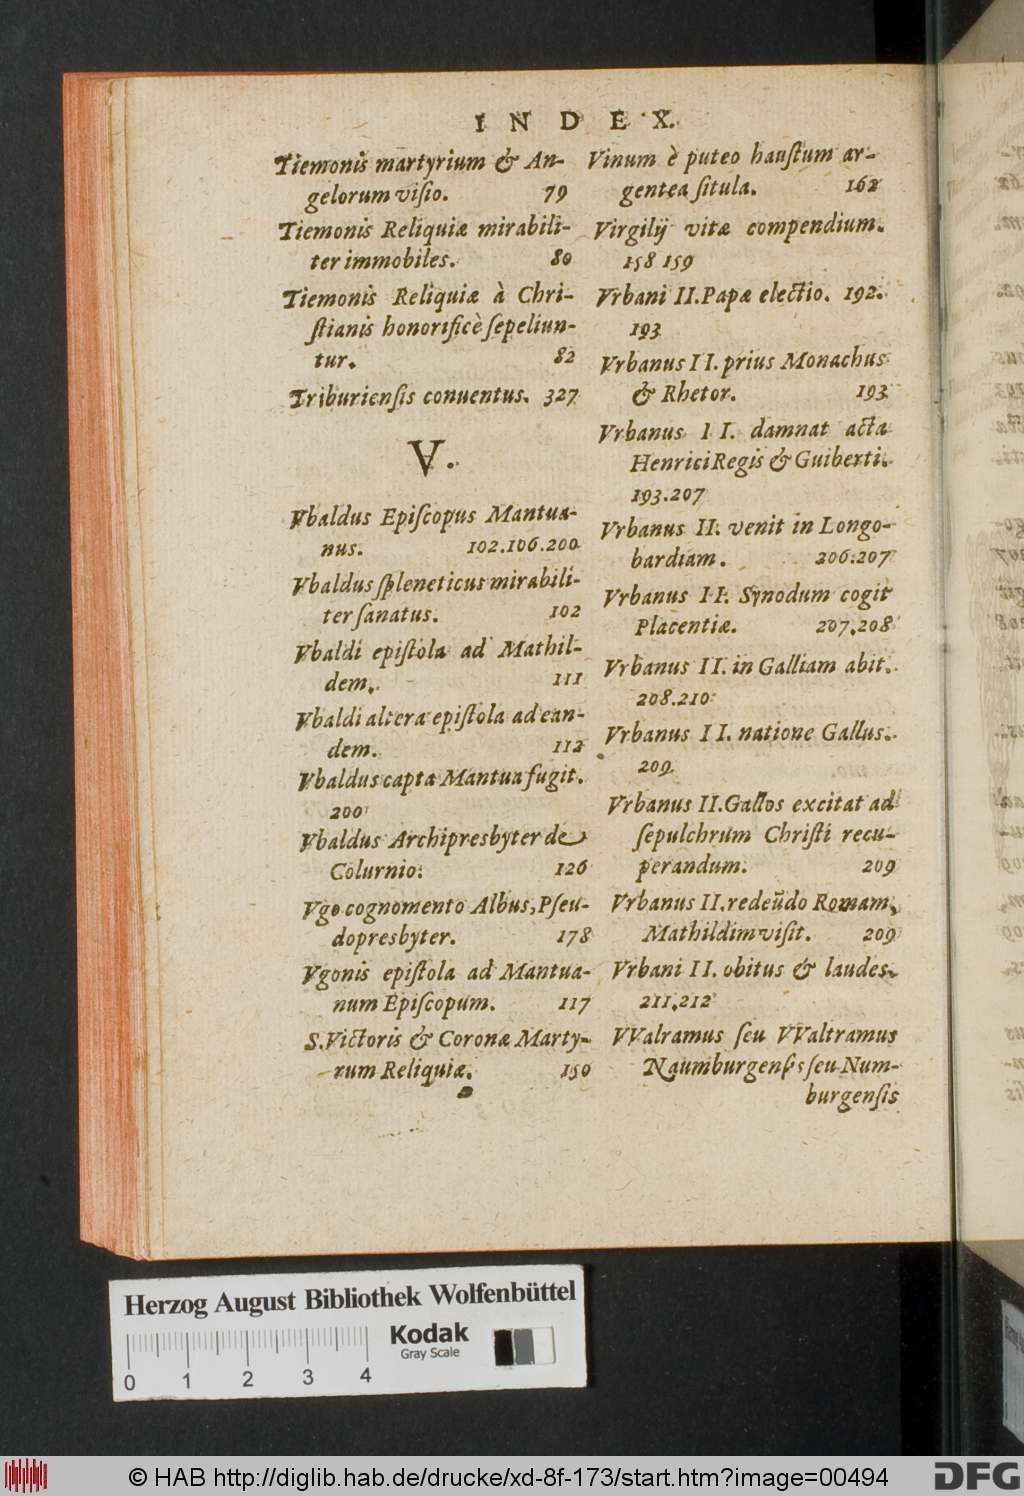 INDEX.
Tiemonis martyrium & An-
gelorum viſio. 79
Tiemonis Reliquiæ mirabili-
ter immobiles. 80
Tiemonis Reliquiæ à Chri-
ſtianis honorificè ſepeliun-
tur. 82
Triburienſis conuentus. 327
V.
Vbaldus Epiſcopus Mantua-
nus. 102.106.200
Vbaldus ſpleneticus mirabili-
ter ſanatus. 102
Vbaldi epiſtola ad Mathil-
dem. 111
Vbaldi altera epiſtola ad ean-
dem. 112
Vbaldus capta Mantua fugit.
200
Vbaldus Archipresbyter de
Colurnio. 126
Vgo cognomento Albus, Pſeu-
dopresbyter. 178
Vgonis epiſtola ad Mantua-
num Epiſcopum. 117
S. Victoris & Coronæ Marty-
rum Reliquiæ. 150
Vinum è puteo hauſtum ar-
gentea ſitula. 162
Virgilij vitæ compendium.
158 159
Vrbani II. Papæ electio. 192.
193
Vrbanus II. prius Monachus
& Rhetor. 193
Vrbanus II. damnat acta
Henrici Regis & Guiberti.
193.207
Vrbanus II. venit in Longo-
bardiam. 206.207
Vrbanus II. Synodum cogit
Placentiæ. 207.208
Vrbanus II. in Galliam abit.
208.210
Vrbanus II. natione Gallus.
209
Vrbanus II. Gallos excitat ad
ſepulchrum Chriſti recu-
perandum. 209
Vrbanus II. redeūdo Romam,
Mathildim viſit. 209
Vrbani II. obitus & laudes.
211.212
VValramus ſeu VValtramus
Naumburgenſis ſeu Num-
burgenſis
Herzog August Bibliothek Wolfenbüttel
Kodak
Gray Scale
0 1 2 3 4
© HAB http://diglib.hab.de/drucke/xd-8f-173/start.htm?image=00494
DFG